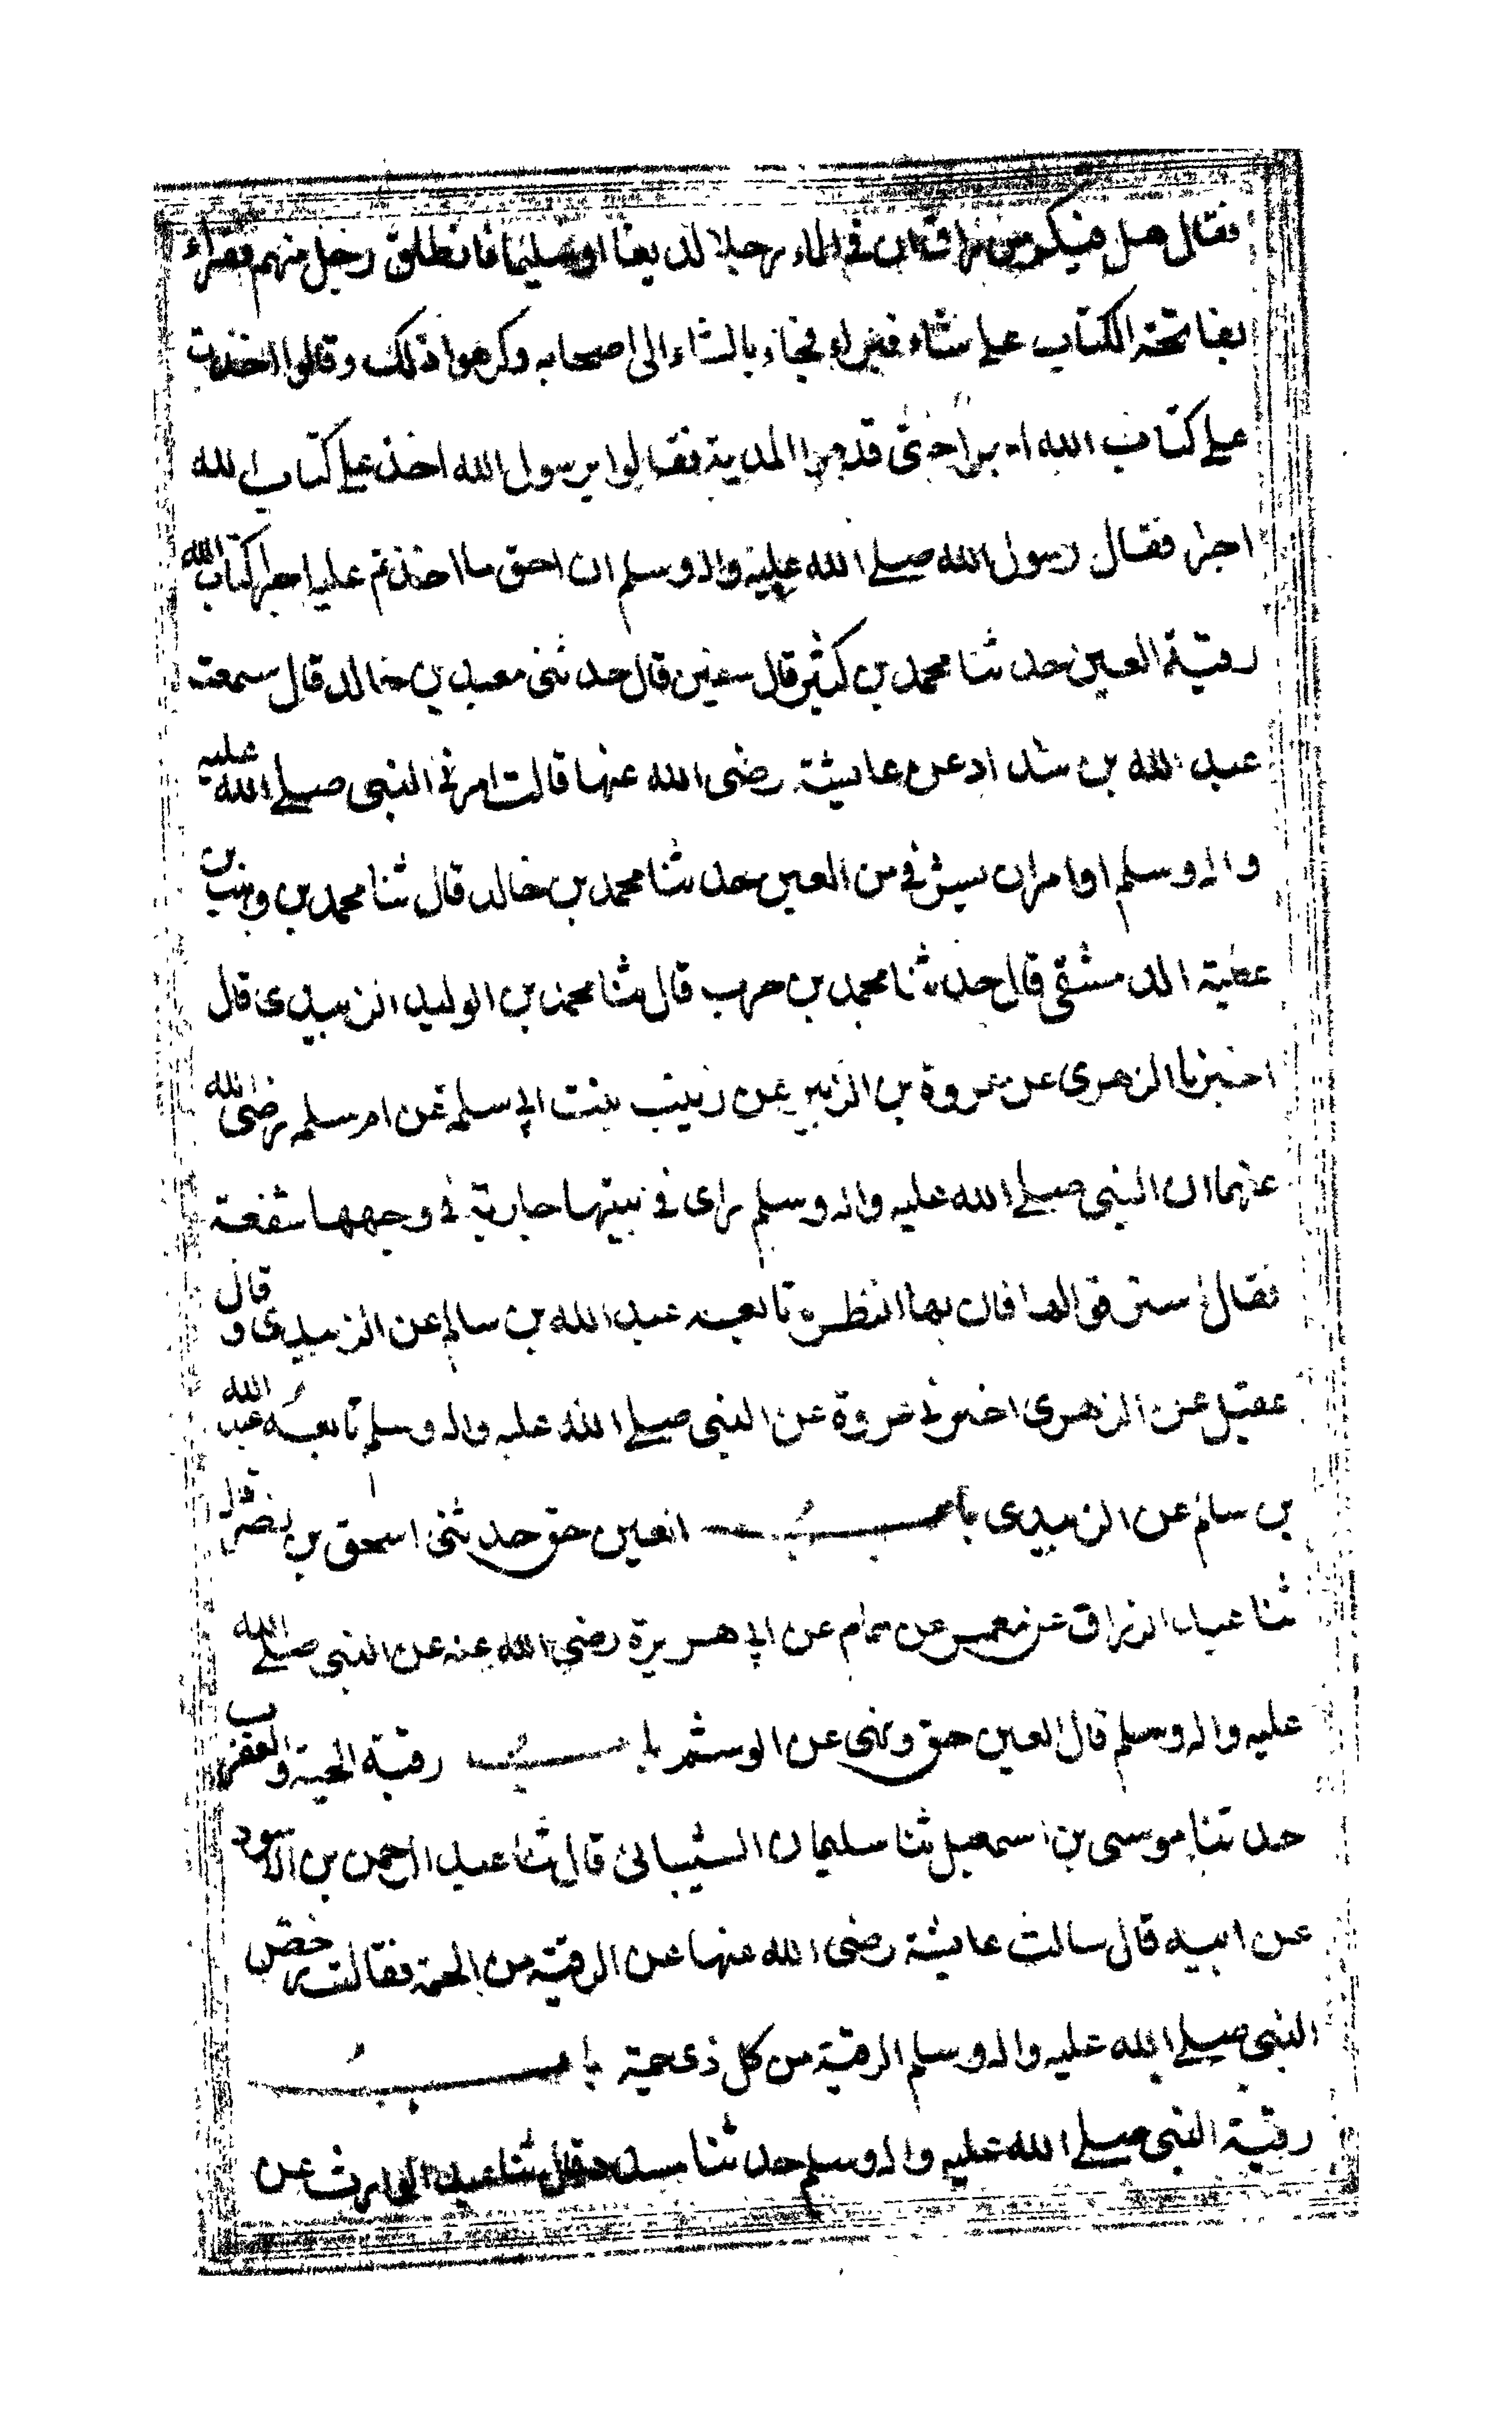 فقال هل فيكم من راق ان في الماء رجلا لديغا او سليما فانطلق رجل منهم فقراء
بفاتحة الكتاب على شاء فبراء فجاء بالشاء الى اصحابه وكرهوا ذلك وقالوا اخذت
على كتاب الله اجرا حتى قدموا المدينة فقالوا يرسول الله اخذ على كتاب الله
اجرا فقال رسول الله صلى الله عليه واله وسلم ان احق ما اخذتم عليه اجرا كتاب الله
رقية العين حدثنا محمد بن كثير قال سفين قال حدثنى معبد بن خالد قال سمعت
عبد الله بن شداد عن عايشة رضى الله عنها قالت امرنى النبى صلى الله عليه
واله وسلم او امر ان يسترقى من العين حدثنا محمد بن خالد قال ثنا محمد بن وهب بن
عطية الدمشقى قال حدثنا محمد بن حرب قال ثنا محمد بن الوليد الزبيدى قال
اخبرنا الزهرى عن عروة بن الزبير عن زينب بنت ابى سلمة عن ام سلمه رضى الله
عنهما ان النبى صلى الله عليه واله وسلم راى فى بيتها جارية فى وجهها سفعة
فقال استرقوا لها فان بها النظره تابعه عبد الله بن سالم عن الزبيدى و قال
عقيل عن الزهرى اخبرنى عروة عن النبى صلى الله عليه واله وسلم تابعه عبد الله
بن سالم عن الزبيدى باب العين حق حدثنى اسحق بن نصر قال
ثنا عبد الرزاق عن معمر عن همام عن ابى هريرة رضى الله عنه عن النبى صلى الله
عليه واله وسلم قال العين حق ونهى عن الوشم باب رقية الحية والعقرب
حدثنا موسى بن اسمعيل ثنا سليمان الشيبانى قال ثنا عبد الرحمن بن الاسود
عن ابيه قال سالت عايشة رضى الله عنها عن الرقية من الحمة فقالت رخص
النبى صلى الله عليه واله وسلم الرقية من كل ذى حمية باب
رقية النبى صلى الله عليه واله وسلم حدثنا مسدد قال ثنا عبد الوارث عن